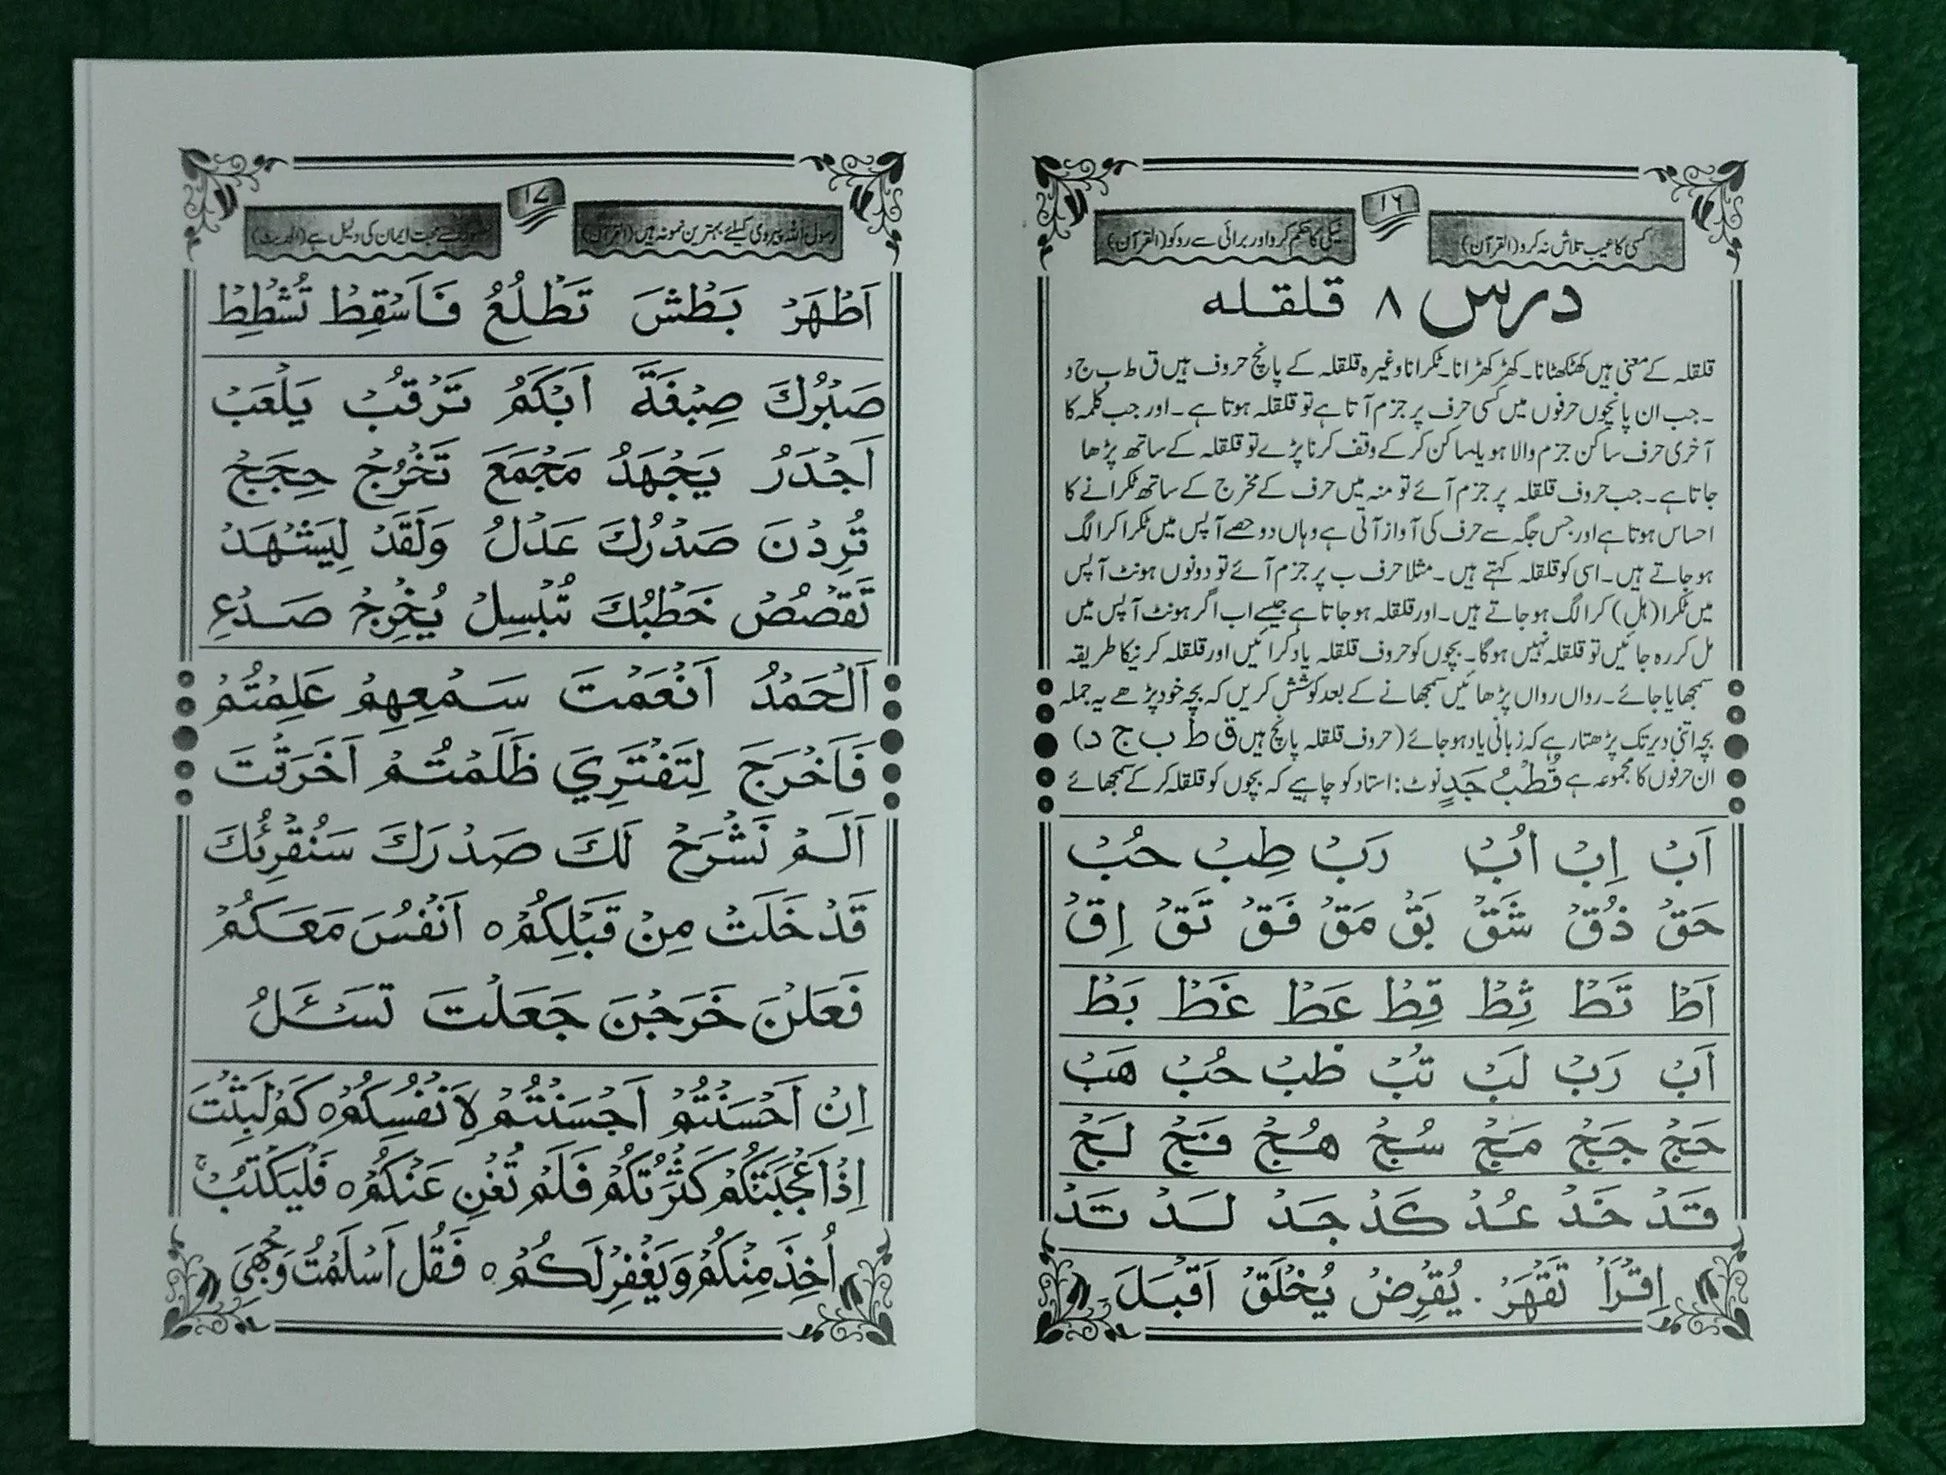 ١٦
کسی کا عیب تلاش نہ کرو (القرآن)
نیکی کا حکم کرو اور برائی سے روکو (القرآن)
درس ٨ قلقلہ
قلقلہ کے معنی ہیں کھٹکھٹانا۔ کھڑ کھڑانا۔ ٹکرانا وغیرہ قلقلہ کے پانچ حروف ہیں ق ط ب ج د
۔ جب ان پانچوں حرفوں میں کسی حرف پر جزم آتا ہے تو قلقلہ ہوتا ہے۔ اور جب کلمہ کا
آخری حرف ساکن جزم والا ہو یا ساکن کر کے وقف کرنا پڑے تو قلقلہ کے ساتھ پڑھا
جاتا ہے۔ جب حروف قلقلہ پر جزم آئے تو منہ میں حرف کے مخرج کے ساتھ ٹکرانے کا
احساس ہوتا ہے اور جس جگہ سے حرف کی آواز آتی ہے وہاں دو حصے آپس میں ٹکرا کر الگ
ہو جاتے ہیں۔ اسی کو قلقلہ کہتے ہیں۔ مثلا حرف ب پر جزم آئے تو دونوں ہونٹ آپس
میں ٹکرا (ہل) کر الگ ہو جاتے ہیں۔ اور قلقلہ ہو جاتا ہے جیسے اب اگر ہونٹ آپس میں
مل کر رہ جائیں تو قلقلہ نہیں ہوگا۔ بچوں کو حروف قلقلہ یاد کرائیں اور قلقلہ کرنیکا طریقہ
سمجھایا جائے۔ رواں رواں پڑھائیں سمجھانے کے بعد کوشش کریں کہ بچہ خود پڑھے یہ جملہ
بچہ اتنی دیر تک پڑھتا رہے کہ زبانی یاد ہو جائے (حروف قلقلہ پانچ ہیں ق ط ب ج د)
ان حرفوں کا مجموعہ ہے قُطْبُ جَدٍ نوٹ: استاد کو چاہیے کہ بچوں کو قلقلہ کر کے سمجھائے
اَبْ اِبْ اُبْ رَبْ طِبْ حُبْ
حَقْ ذُقْ شَقْ بَقْ مَقْ فَقْ تَقْ اِقْ
اَطْ تَطْ ثِطْ قِطْ عَطْ غَطْ بَطْ
اَبْ رَبْ لَبْ تُبْ طْبْ حُبْ هَبْ
حَجْ جَجْ مَجْ سُجْ هُجْ فَجْ لَجْ
قَدْ خَدْ عُدْ كَدْ جَدْ لَدْ تَدْ
اِقْرَاْ تَقْهَرْ. يُقْرِضُ يُخْلَقْ اَقْبَلَ
١٧
رسول اللہ پیروی کیلئے بہترین نمونہ ہیں (القرآن)
محبت ایمان کی دلیل ہے (الحدیث)
اَطْهَرْ بَطْشَ تَطْلُعُ فَاَسْقِطْ تُشْطِطْ
صَبْرُكَ صِبْغَةَ اَبْكَمُ تَرْقُبْ يَلْعَبْ
اَجْدَرُ يَجْهَدُ مَجْمَعَ تَخْرُجْ حِجَجْ
تُرِدْنَ صَدْرُكَ عَدْلُ وَلَقَدْ لِيَشْهَدْ
تَقْصُصْ خَطْبُكَ تُبْسِلْ يُخْرِجْ صَدْعِ
اَلْحَمْدُ اَنْعَمْتَ سَمْعِهِمْ عَلِمْتُمْ
فَاَخْرَجَ لِتَفْتَرِيَ ظَلَمْتُمْ اَخَرَقْتَ
اَلَمْ نَشْرَحْ لَكَ صَدْرَكَ سَنُقْرِئُكَ
قَدْ خَلَتْ مِنْ قَبْلِكُمْ ٥ اَنْفُسَ مَعَكُمْ
فَعَلْنَ خَرَجْنَ جَعَلْتَ تَسْئَلُ
اِنْ اَحْسَنْتُمْ اَحْسَنْتُمْ لِاَنْفُسِكُمْ ٥ كَمْ لَبِثْتَ
اِذْ اَعْجَبَتْكُمْ كَثْرَتُكُمْ فَلَمْ تُغْنِ عَنْكُمْ ٥ فَلْيَكْتُبْ
اُخِذَ مِنْكُمْ وَيَغْفِرْ لَكُمْ ٥ فَقُلْ اَسْلَمْتُ وَجْهِيَ